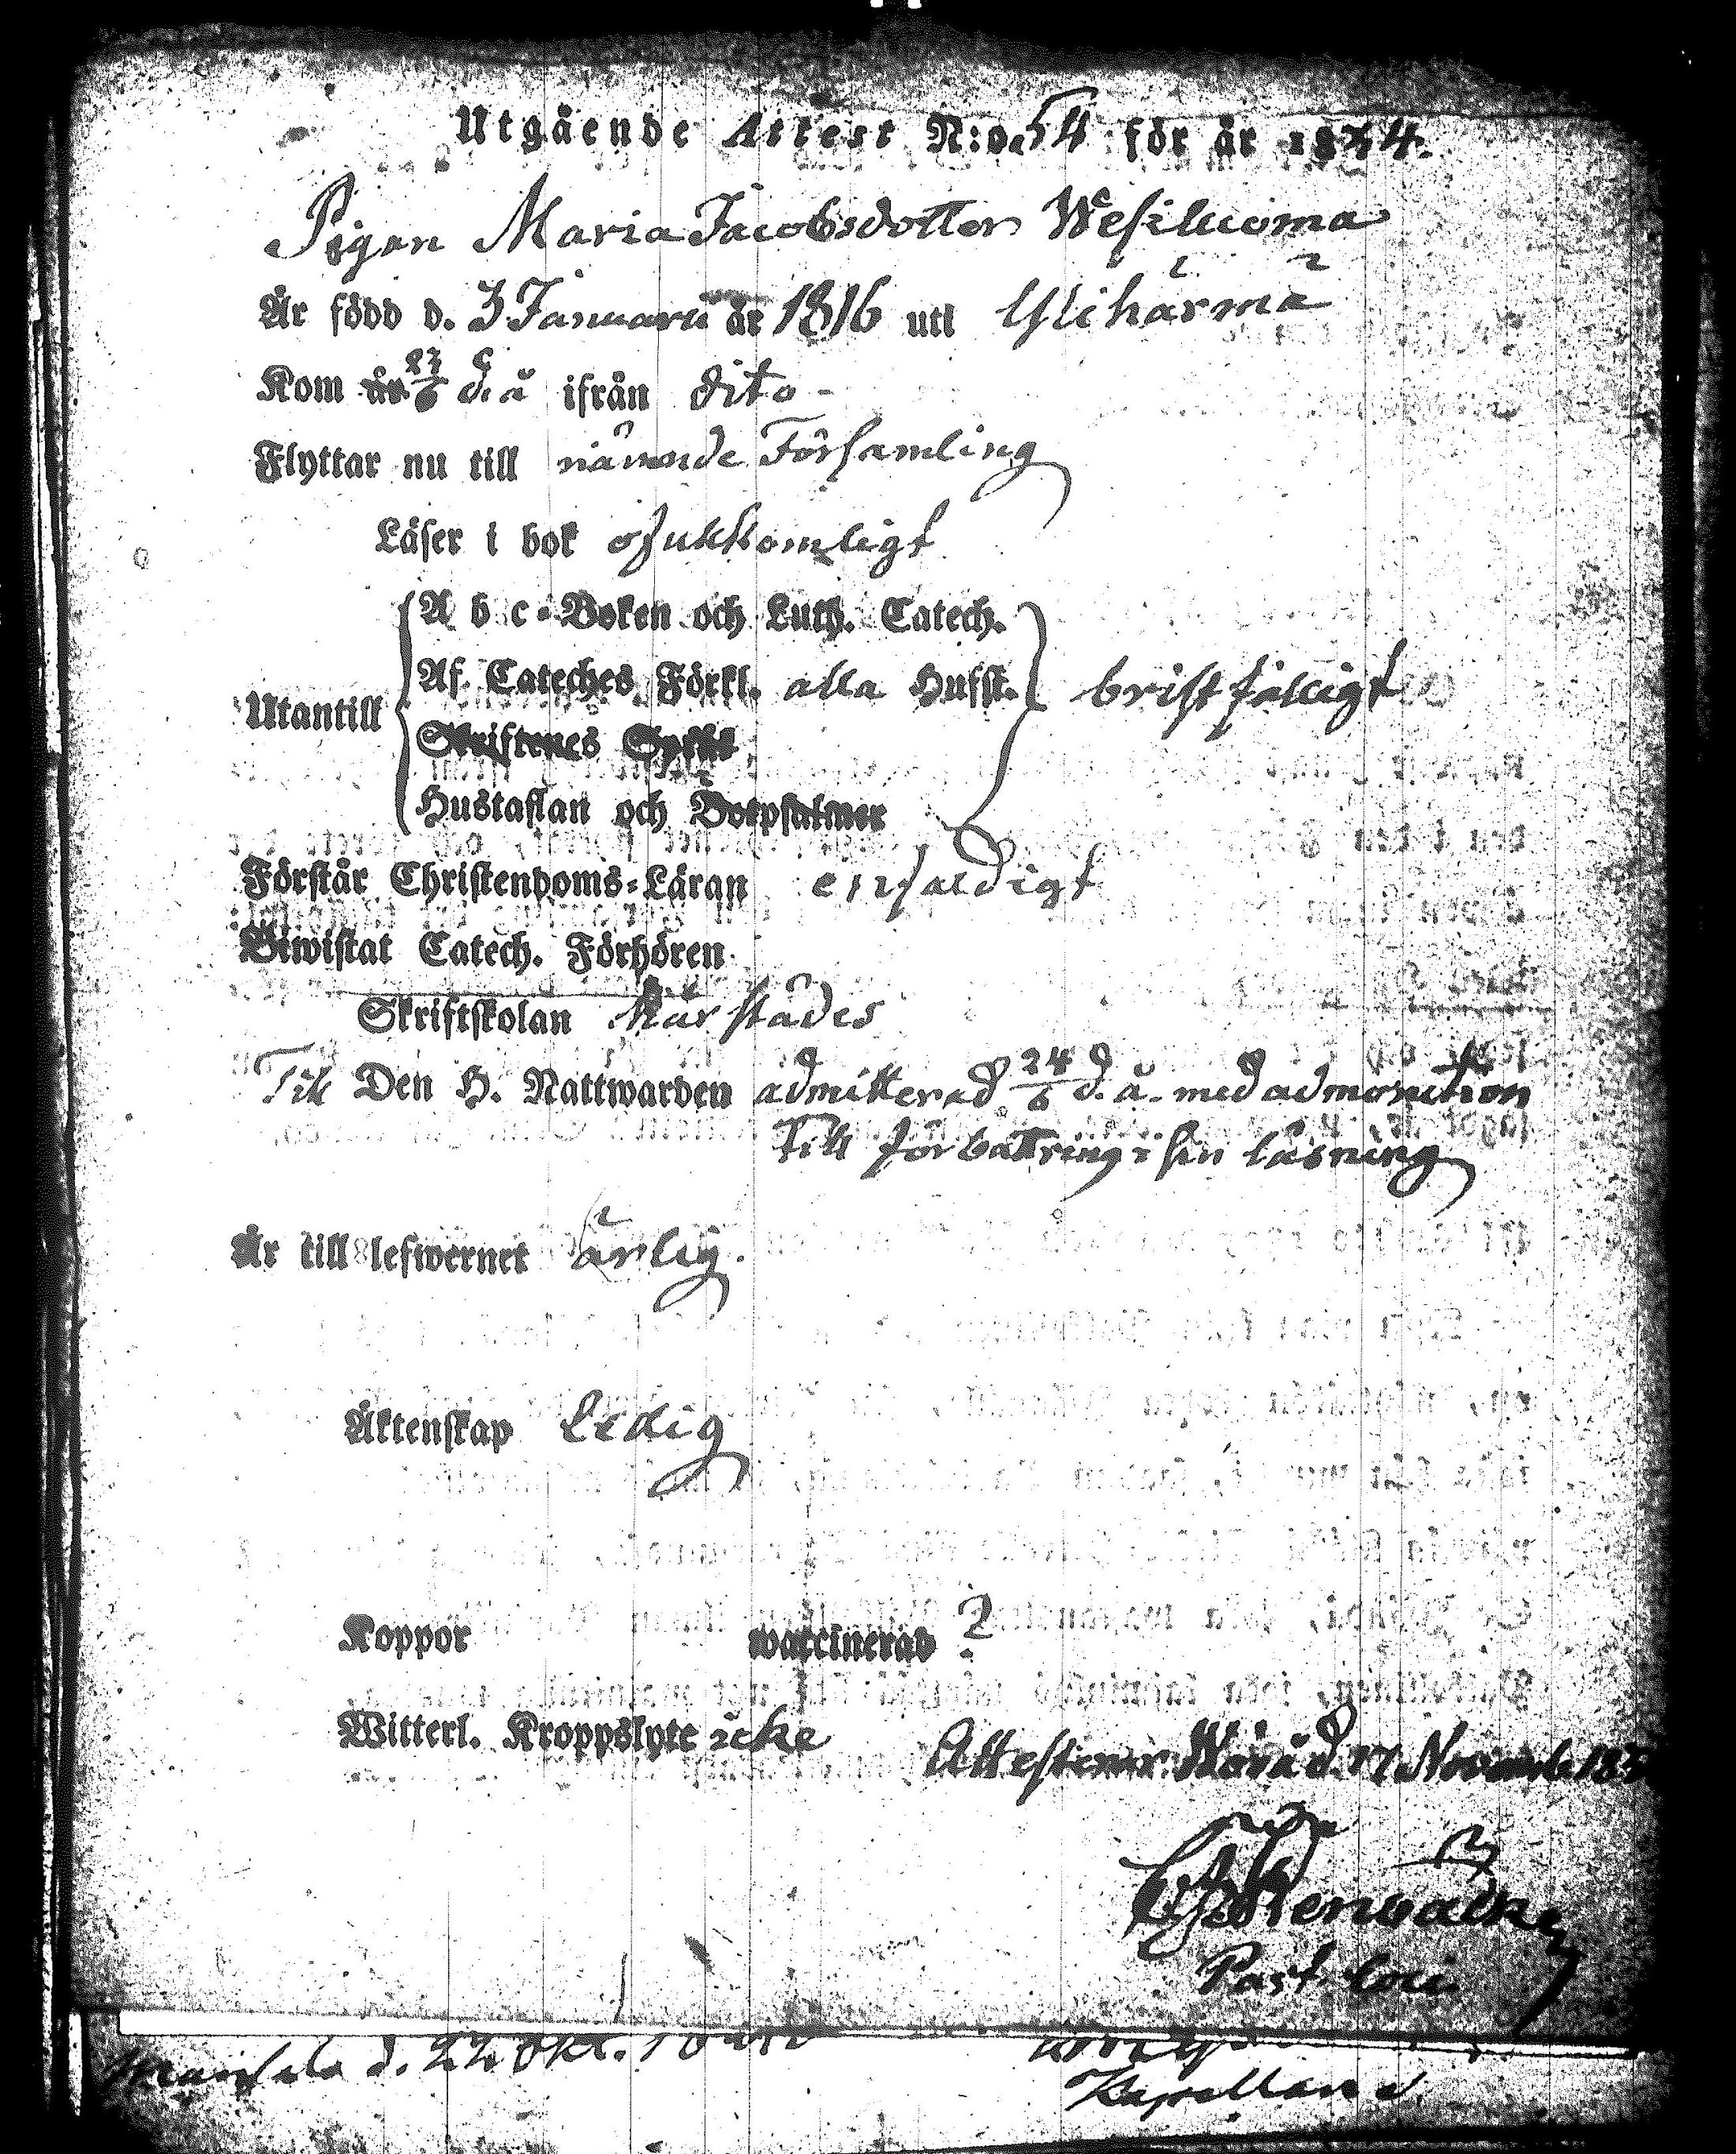 Utgående Attest N:o 54 för år 1834.
Pigan Maria Jacobsdotter Wesiluoma
Är född d. 3 Januarii år 1816 uti Ylihärmä
Kom år 27/6 d. å ifrån dito
Flyttar nu till nämnde Församling
Läser i bok ofullkomligt
A b c-Boken och Luth. Catech.
Af Cateches Förkl. alla Hufst. bristfälligt
Utantill
Skriftenes Språk
Hustaflan och Botpsalmer
Förstår Christendoms-Läran enfaldigt
Biwistat Catech. Förhören
Skriftskolan härstädes
Till Den H. Nattwarden admitterad 24/6 d. å. med admonition
till förbättring i sin läsning
Är till lefwernet ärlig.
Äktenskap Ledig
Koppor waccinerad ?
Witterl. Kroppslyte icke
Attesterar Wörå d. 17 Novemb. 18
Past. loci
d. 22 Okt.
Kapellan